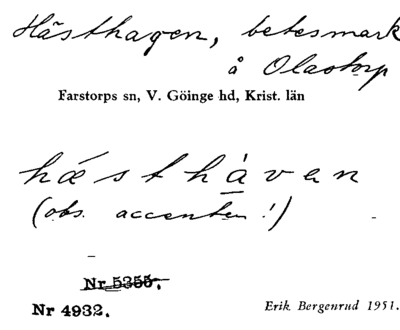 Hästhagen, betesmark
å Olastorp
Farstorps sn, V. Göinge hd, Krist. län
hǽsthàven
(obs. accenten!)
Nr 5355.
Nr 4932.
Erik Bergenrud 1951.